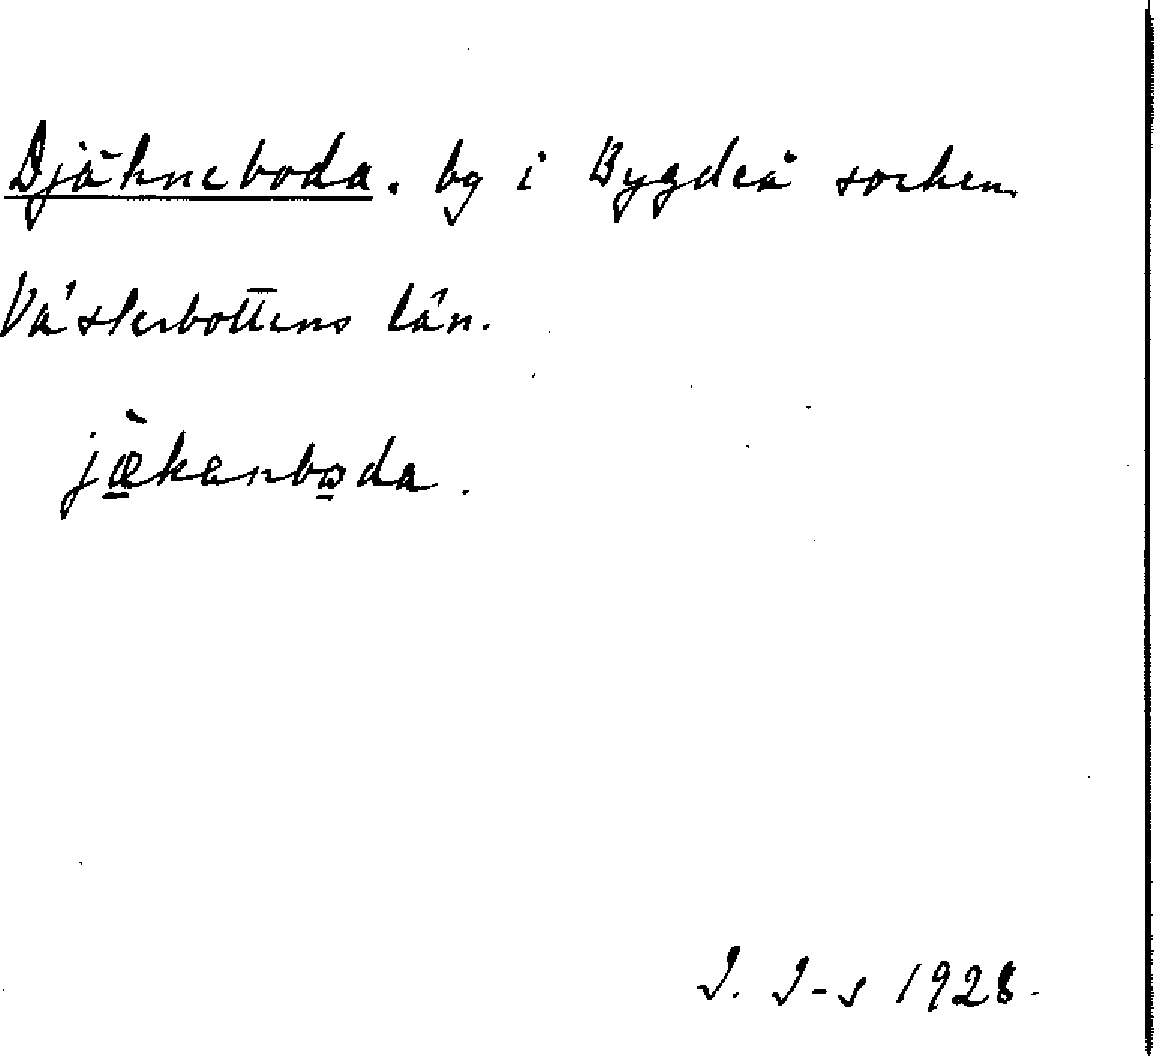 Djäkneboda. by i Bygdeå socken
Västerbottens län.
jæ̀kenboda.
J. J-s 1928.